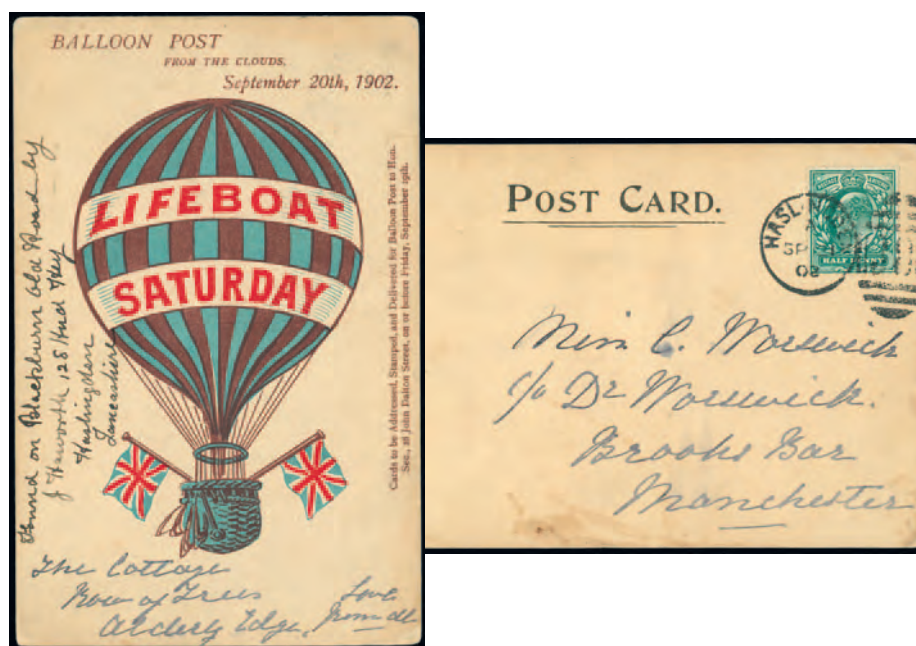 BALLOON POST
FROM THE CLOUDS.
September 20th, 1902.
LIFEBOAT
SATURDAY
Cards to be Addressed, Stamped, and Delivered for Balloon Post to Hon.
Sec., at John Dalton Street, on or before Friday, September 19th.
Found on Blackburn Old Road by
J Haworth 128 Hud Hey
Haslingden
Lancashire
The Cottage
Row of Trees
Alderly Edge,
Love
from all
POST CARD.
HASLIN
SP
02
HALF PENNY
Miss C. Worswick
c/o Dr Worswick.
Brooks Bar
Manchester